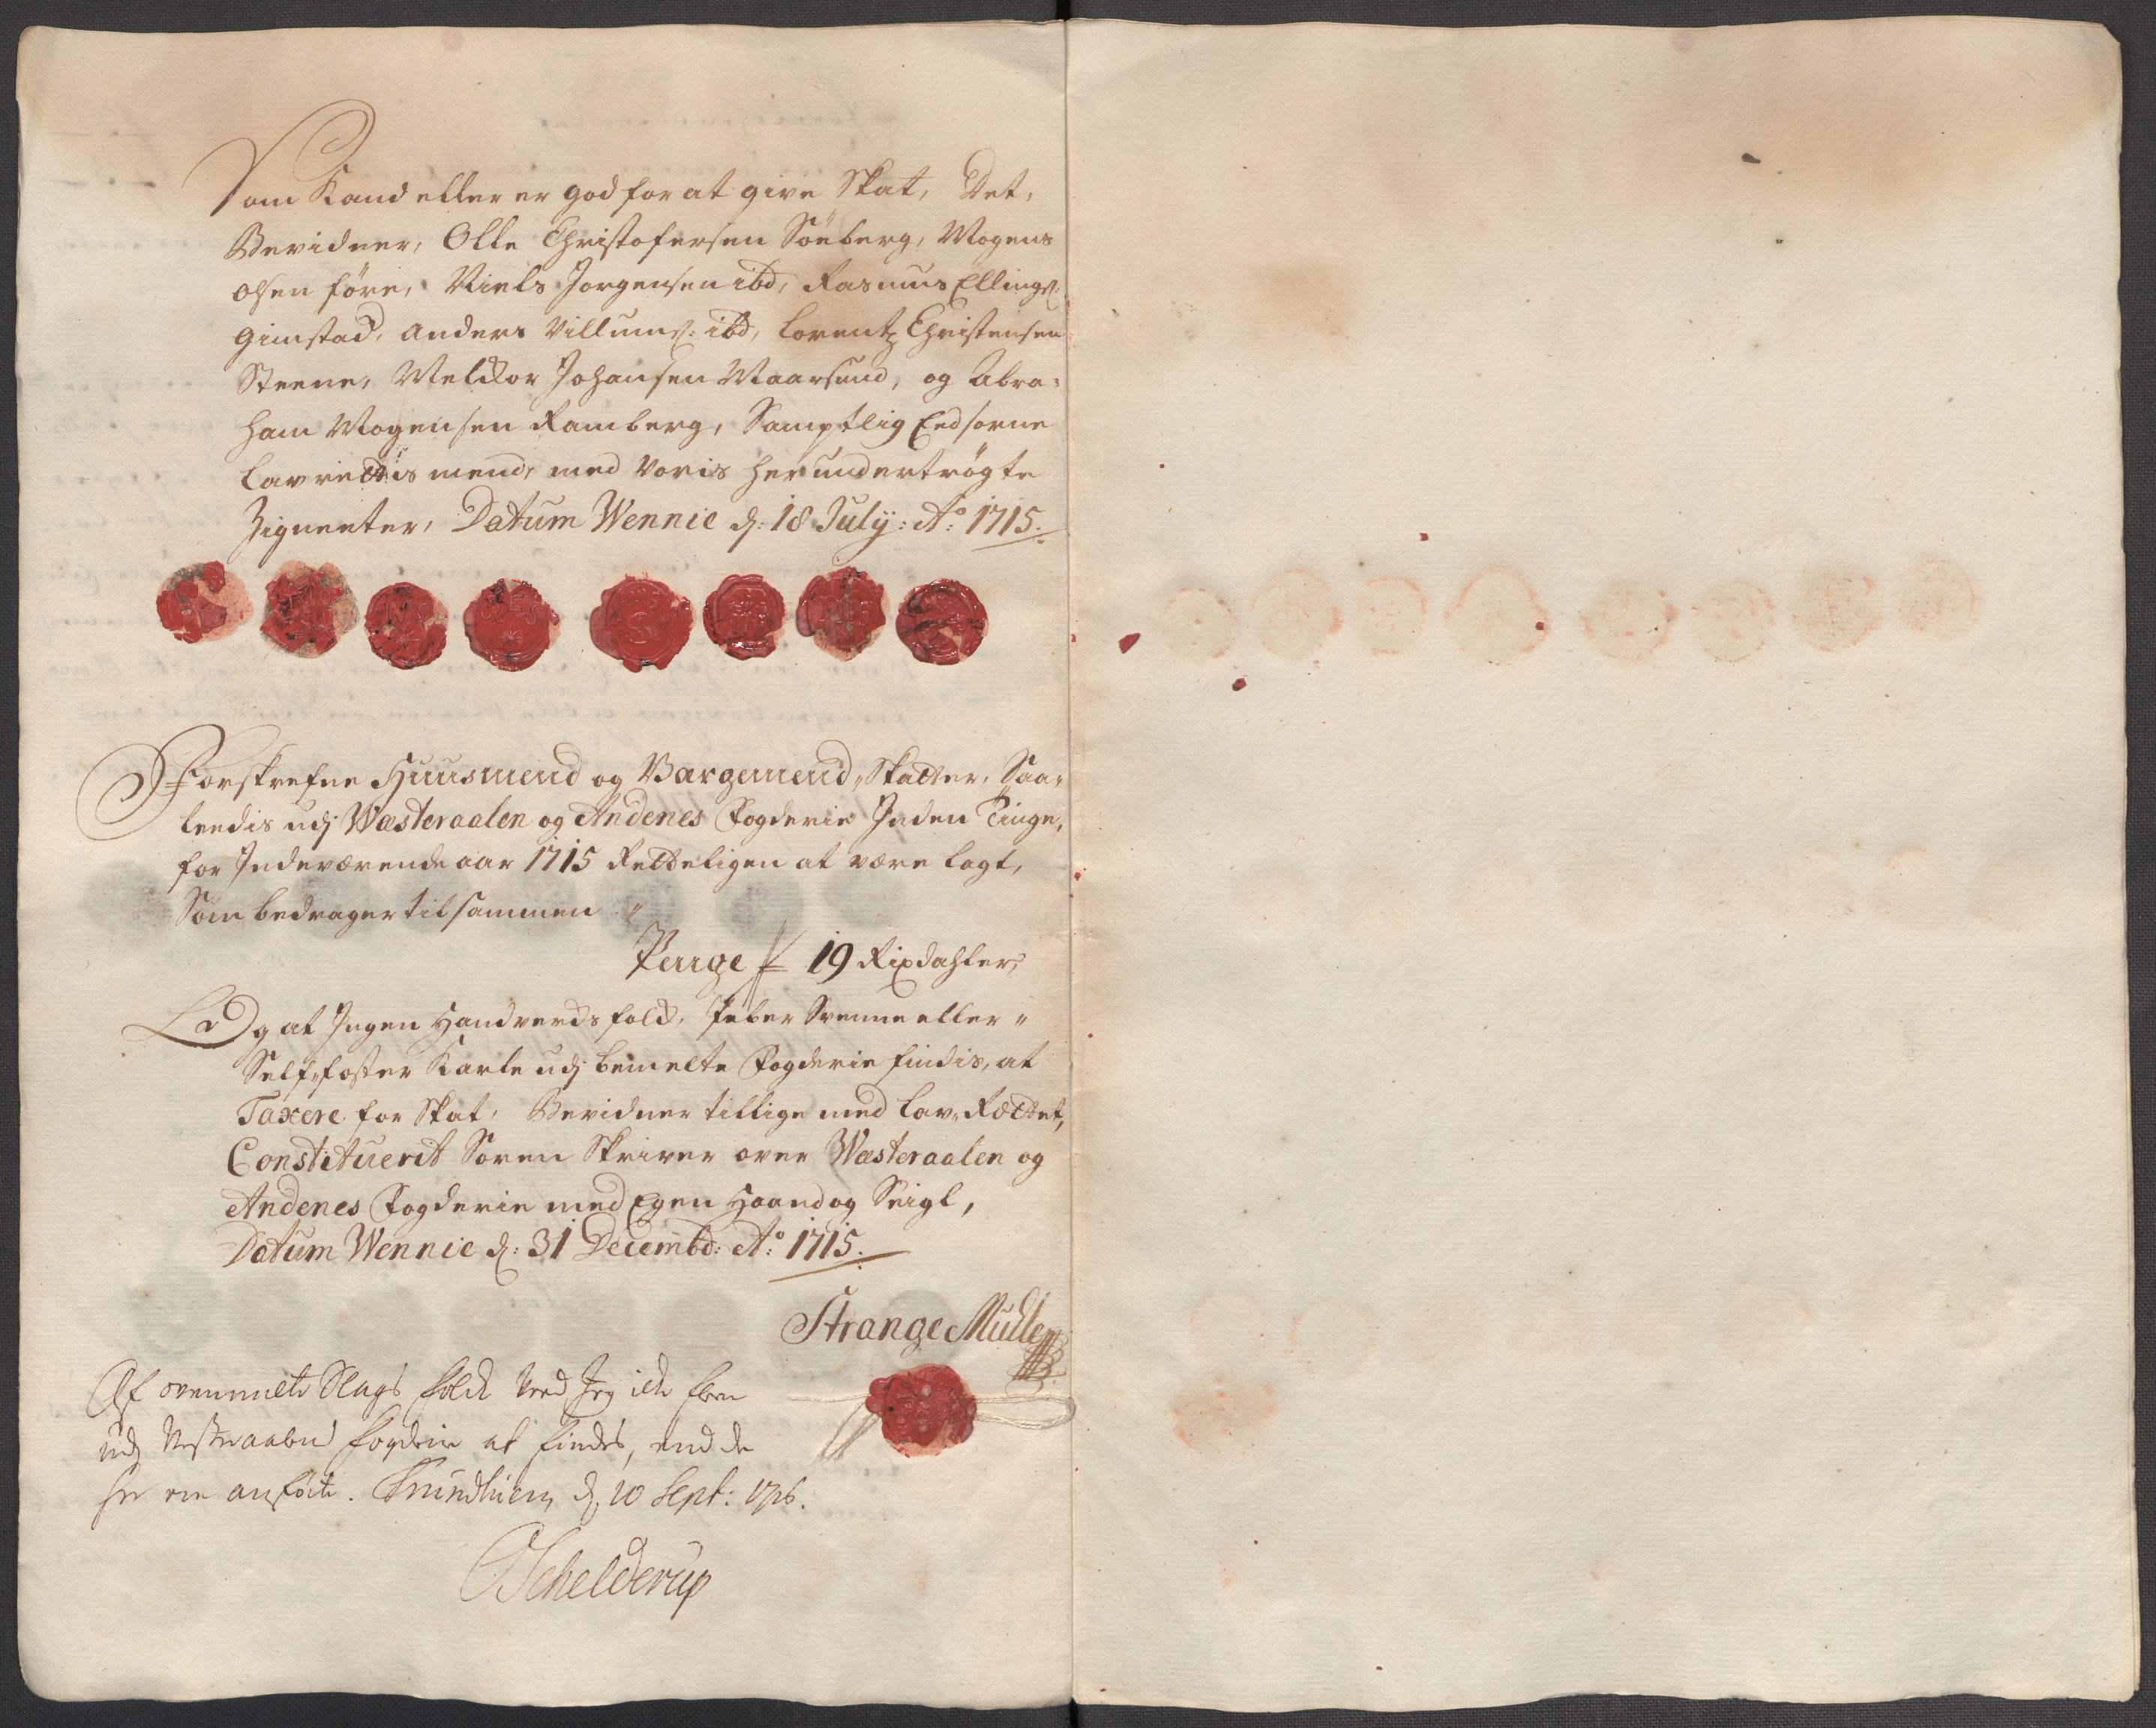 Som Kand eller er god for at give Skat, Det,
Bevidner, Olle Christofersen Söeberg, Mogens
Olsen före, Niels Jorgensen ibd, Rasmus Ellings:
Gimstad, Anders Villums: ibd, Lorentz Christensen
Steene, Melchior Johansen Maarsund, og Abra-
ham Mogensen Ramberg, Samptlig Eedsorne
Lavrettis mend, med Voris her undertrögte
Zigneter, Datum Wennie d: 18 July: Ao: 1715.
Forskrefne Huusmend og Borgemend, Skatter, Saa-
leedis udj Wæsteraalen og Andenes Fogderie Inden Tinge,
for Indeværende aar 1715 Retteligen at være lagt,
Som bedrager tilsammen
Penge 19 Rixdahler,
Og at Ingen Handverchs folck, Febersvenne eller
Self-foster Karle udj bemelte Fogderie findis, at
Taxere for Skat, Bevidner tillige med Lav-Rættet,
Constituerit Soren Skriver over Wæsteraalen og
Andenes Fogderie med Egen Haand og Seigl,
Datum Wennie d: 31 Decembd: Ao: 1715.
Strange Muller
Af ovenmelte Slags folck veed Jeg icke flere
udj Vesteraalens fogderie at findes, end de
her ere anförte. Trundhiem d, 10 Sept: 1716.
Schelderup